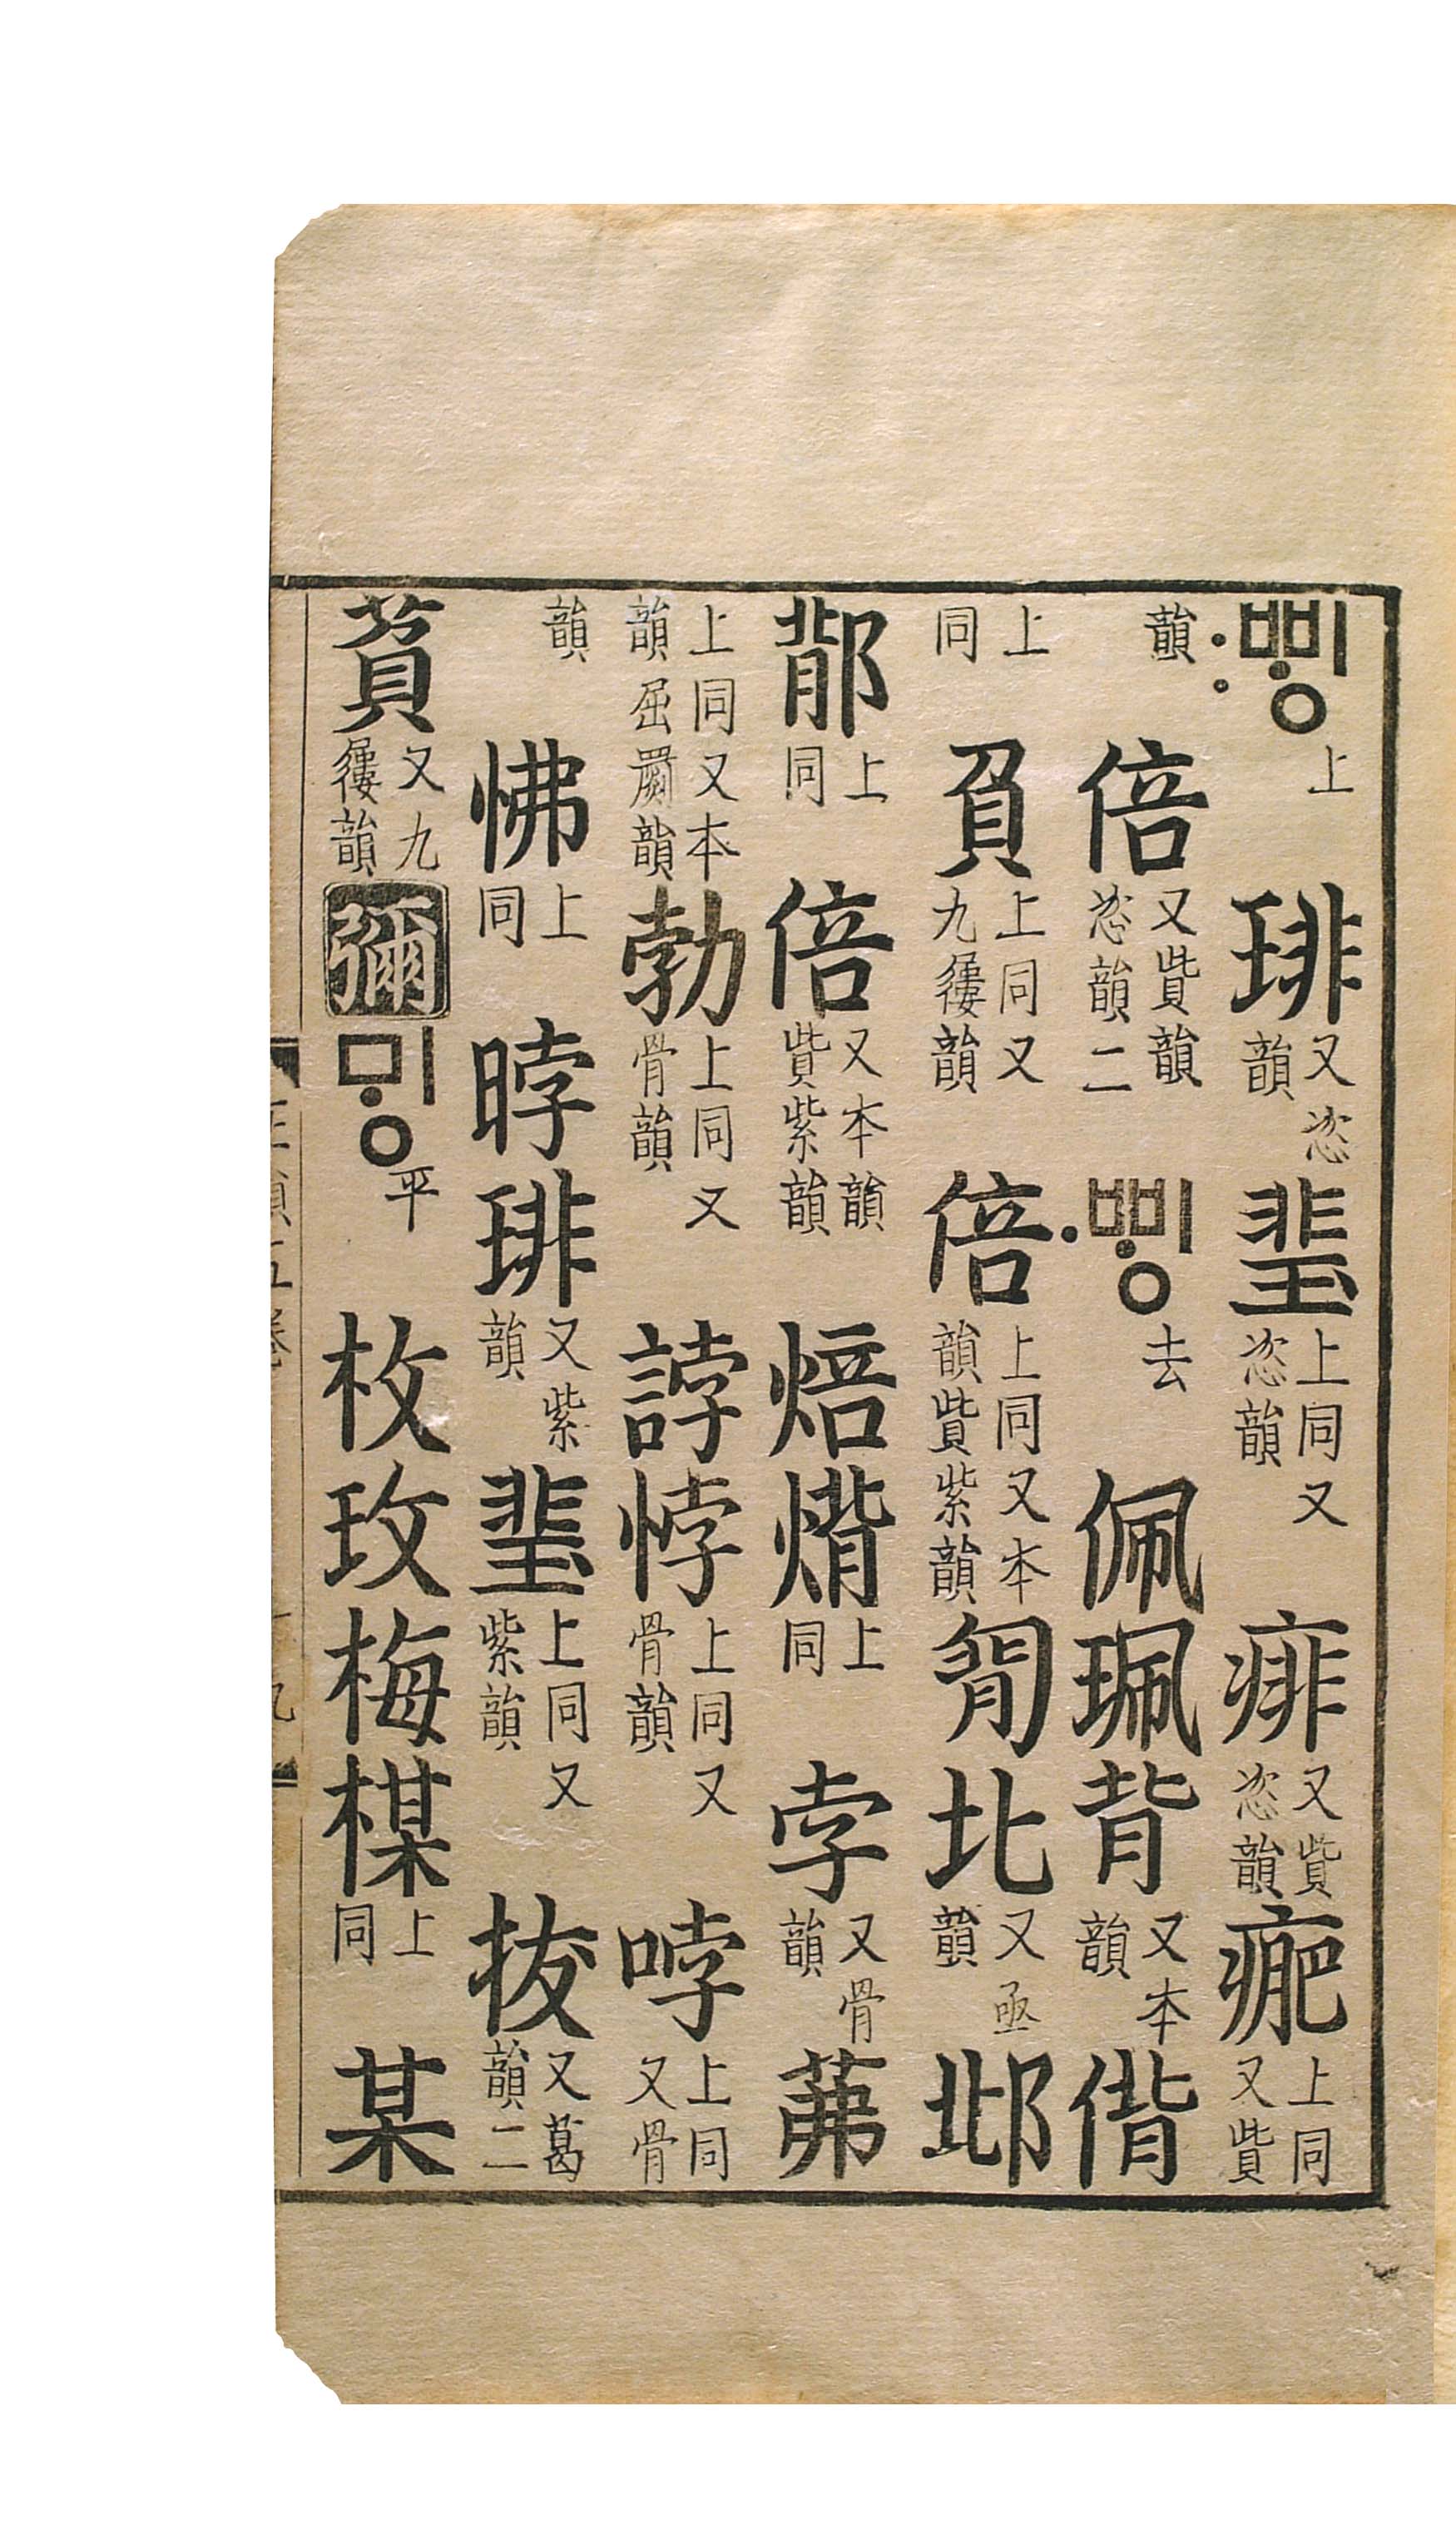 〯ᄈᆡᆼ上 琲又恣韻 上同又恣韻 痱又貲恣韻 上同又貲
韻 倍又貲韻恣韻二 〮ᄈᆡᆼ去 佩珮背又本韻 偝
上同 負上同又九韻 倍上同又本韻貲紫韻 北又亟韻 邶
鄁上同 倍又本韻貲紫韻 焙㷶上同 孛又骨韻 茀
上同又本韻屈韻 勃上同又骨韻 誖悖上同又骨韻 哱上同又骨
韻 怫上同 㫲琲又紫韻 上同又紫韻 拔又葛韻二
萯又九韻 彌 ᄆᆡᆼ平 枚玫梅楳上同 某